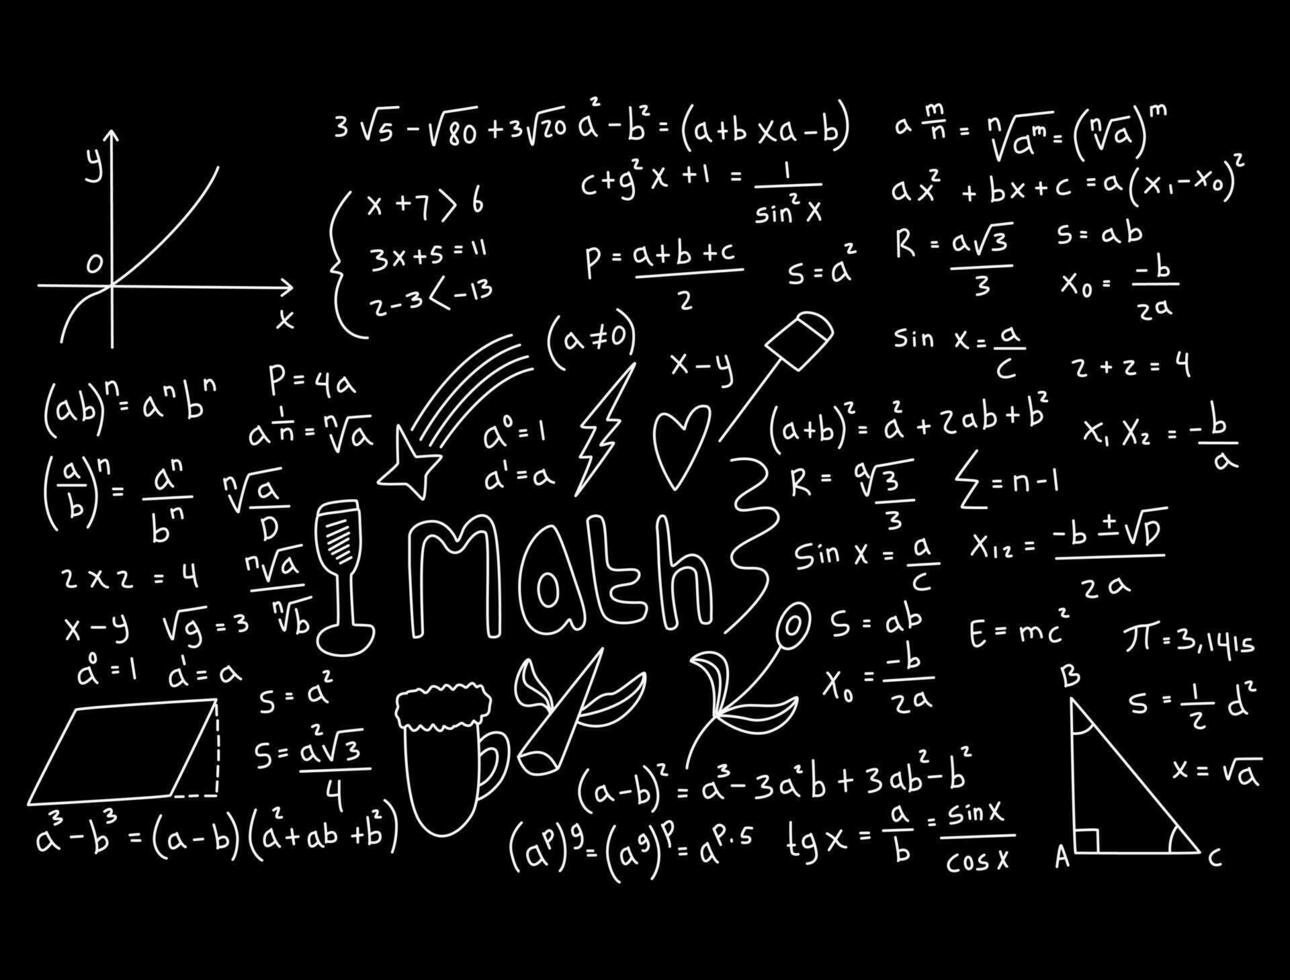 y
0
x
3√5 − √80 + 3√20 a² − b² = (a+b xa−b)
c+g² x +1 = 1/sin² x
a^(m/n) = ⁿ√a^m = (ⁿ√a)^m
ax² + bx + c = a(x₁−x₀)²
x + 7 > 6
3x+5 = 11
2−3 < −13
P = a+b+c/2
S = a²
R = a√3/3
S = ab
x₀ = −b/2a
(a≠0)
x−y
sin x = a/c
2 + 2 = 4
(ab)ⁿ = aⁿbⁿ
P = 4a
a^(1/n) = ⁿ√a
a⁰ = 1
a¹ = a
(a+b)² = a² + 2ab + b²
x₁ x₂ = −b/a
(a/b)ⁿ = aⁿ/bⁿ
ⁿ√a/D
R = ᵃ√3/3
Σ = n−1
2 x 2 = 4
ⁿ√a/ⁿ√b
Math
Sin x = a/c
x₁₂ = −b ±√D/2a
x−y
√g = 3
S = ab
E = mc²
π = 3,1415
a⁰ = 1
a¹ = a
x₀ = −b/2a
S = a²
S = a²√3/4
B
S = 1/2 d²
x = √a
(a−b)² = a³ − 3a²b + 3ab² − b²
a³ − b³ = (a−b)(a² + ab + b²)
(a^p)^g = (a^g)^p = a^(p·5)
tgx = a/b = sin x/cos x
A
C